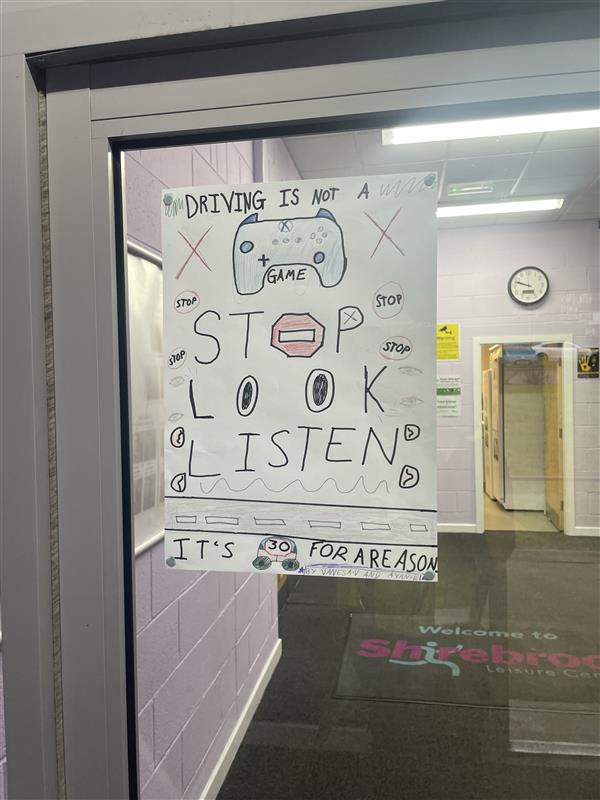 DRIVING IS NOT A
GAME
STOP
STOP
STOP
STOP
STOP
LOOK
LISTEN
IT'S 30 FOR A REASON
BY VANESA.V AND
Warning
Welcome to
Shirebroo
Leisure Cen